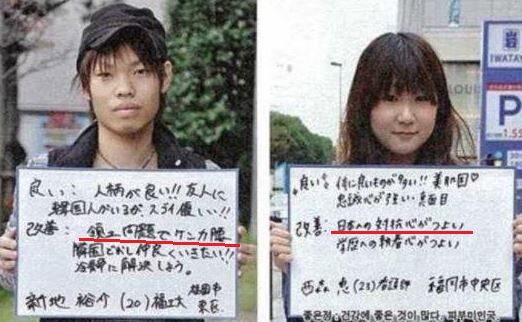 良い: 人柄が良い!! 友人に
韓国人がいるがスゴイ優しい!!
改善: 領土問題でケンカ腰
隣国どおし仲良くいきたい!!
冷静に解決しよう。
新地 裕介 (20) 福工大
福岡市
東区
岩
IWATAYA
P
良い: 体に良いものが多い!! 美肌国♡
忠誠心が強い 真面目
改善: 日本への対抗心がつよい
学歴への執着心がつよい
西森 恵 (23) 看護師 福岡市中央区
좋은점-건강에 좋은 것이 많다. 피부미인국.